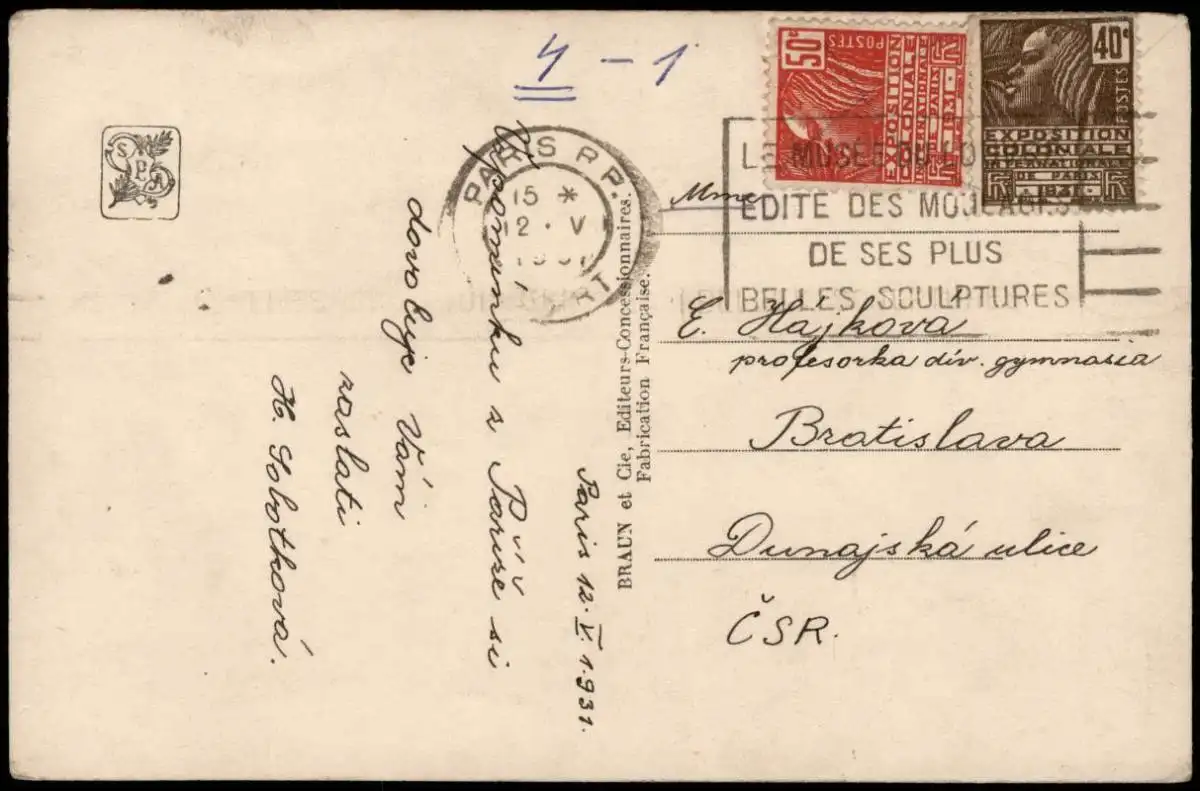 4 - 1
50c
POSTES
EXPOSITION
COLONIALE
INTERNATIONALE
DE PARIS
1931
RF
40c
POSTES
EXPOSITION
COLONIALE
INTERNATIONALE
DE PARIS
1931
RF
SPA
PARIS R.P.
15 *
12 · V
LE MUSEE DU LO
EDITE DES MOULAGES
DE SES PLUS
BELLES SCULPTURES
Vzpomínku z Paříže si
dovoluje Vám
zaslati
H. Sobotková.
Paris 12. V. 1931.
BRAUN et Cie, Editeurs-Concessionnaires.
Fabrication Française.
Mme
E. Hájkova
profesorka dív. gymnasia
Bratislava
Dunajská ulice
ČSR.